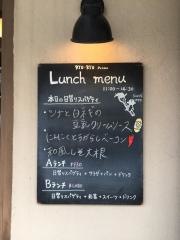 Lunch menu
11:00~14:30
本日の日替りスパゲティ
・ツナと白ネギの
豆乳クリームソース
・にんにくとうがらしベーコン
・和風しそ大根
Aランチ
日替りスパゲティ + サラダ + パン + ドリンク
Bランチ
日替りスパゲティ + 前菜 + スイーツ + ドリンク